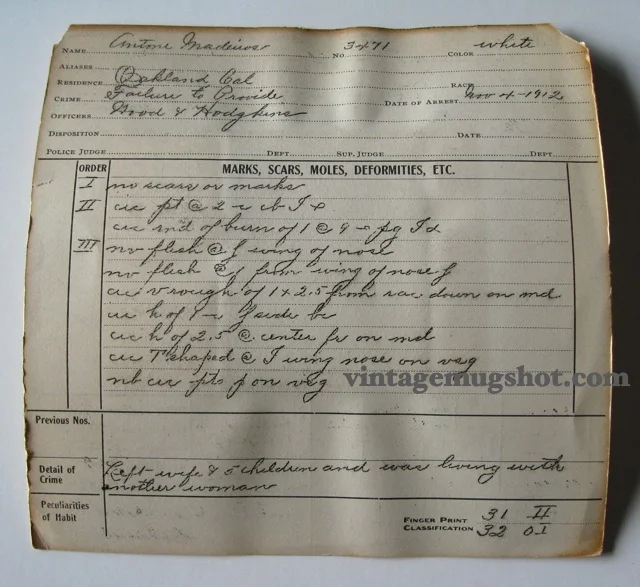 NAME Antone Madeiros NO 3471 COLOR white
ALIASES
RESIDENCE Oakland Cal RACE
CRIME Failure to Provide DATE OF ARREST Nov 4-1912
OFFICERS Hood & Hodgkins
DISPOSITION DATE
POLICE JUDGE DEPT. SUP. JUDGE DEPT.
ORDER MARKS, SCARS, MOLES, DEFORMITIES, ETC.
I no scars or marks
II cic pt @ 2
cic rnd of burn of 1 @ 9
III nv flesh @ wing of nose
nv flesh @ from wing of nose
cic v rough of 1 x 2.5 from down on md
cic h of
cic h of 2.5 @ center on md
cic T shaped @ wing nose on
nb cic pts on
vintagemugshot.com
Previous Nos.
Detail of Crime Left wife & 5 children and was living with
another woman
Peculiarities of Habit
FINGER PRINT CLASSIFICATION 31 II
32 OI